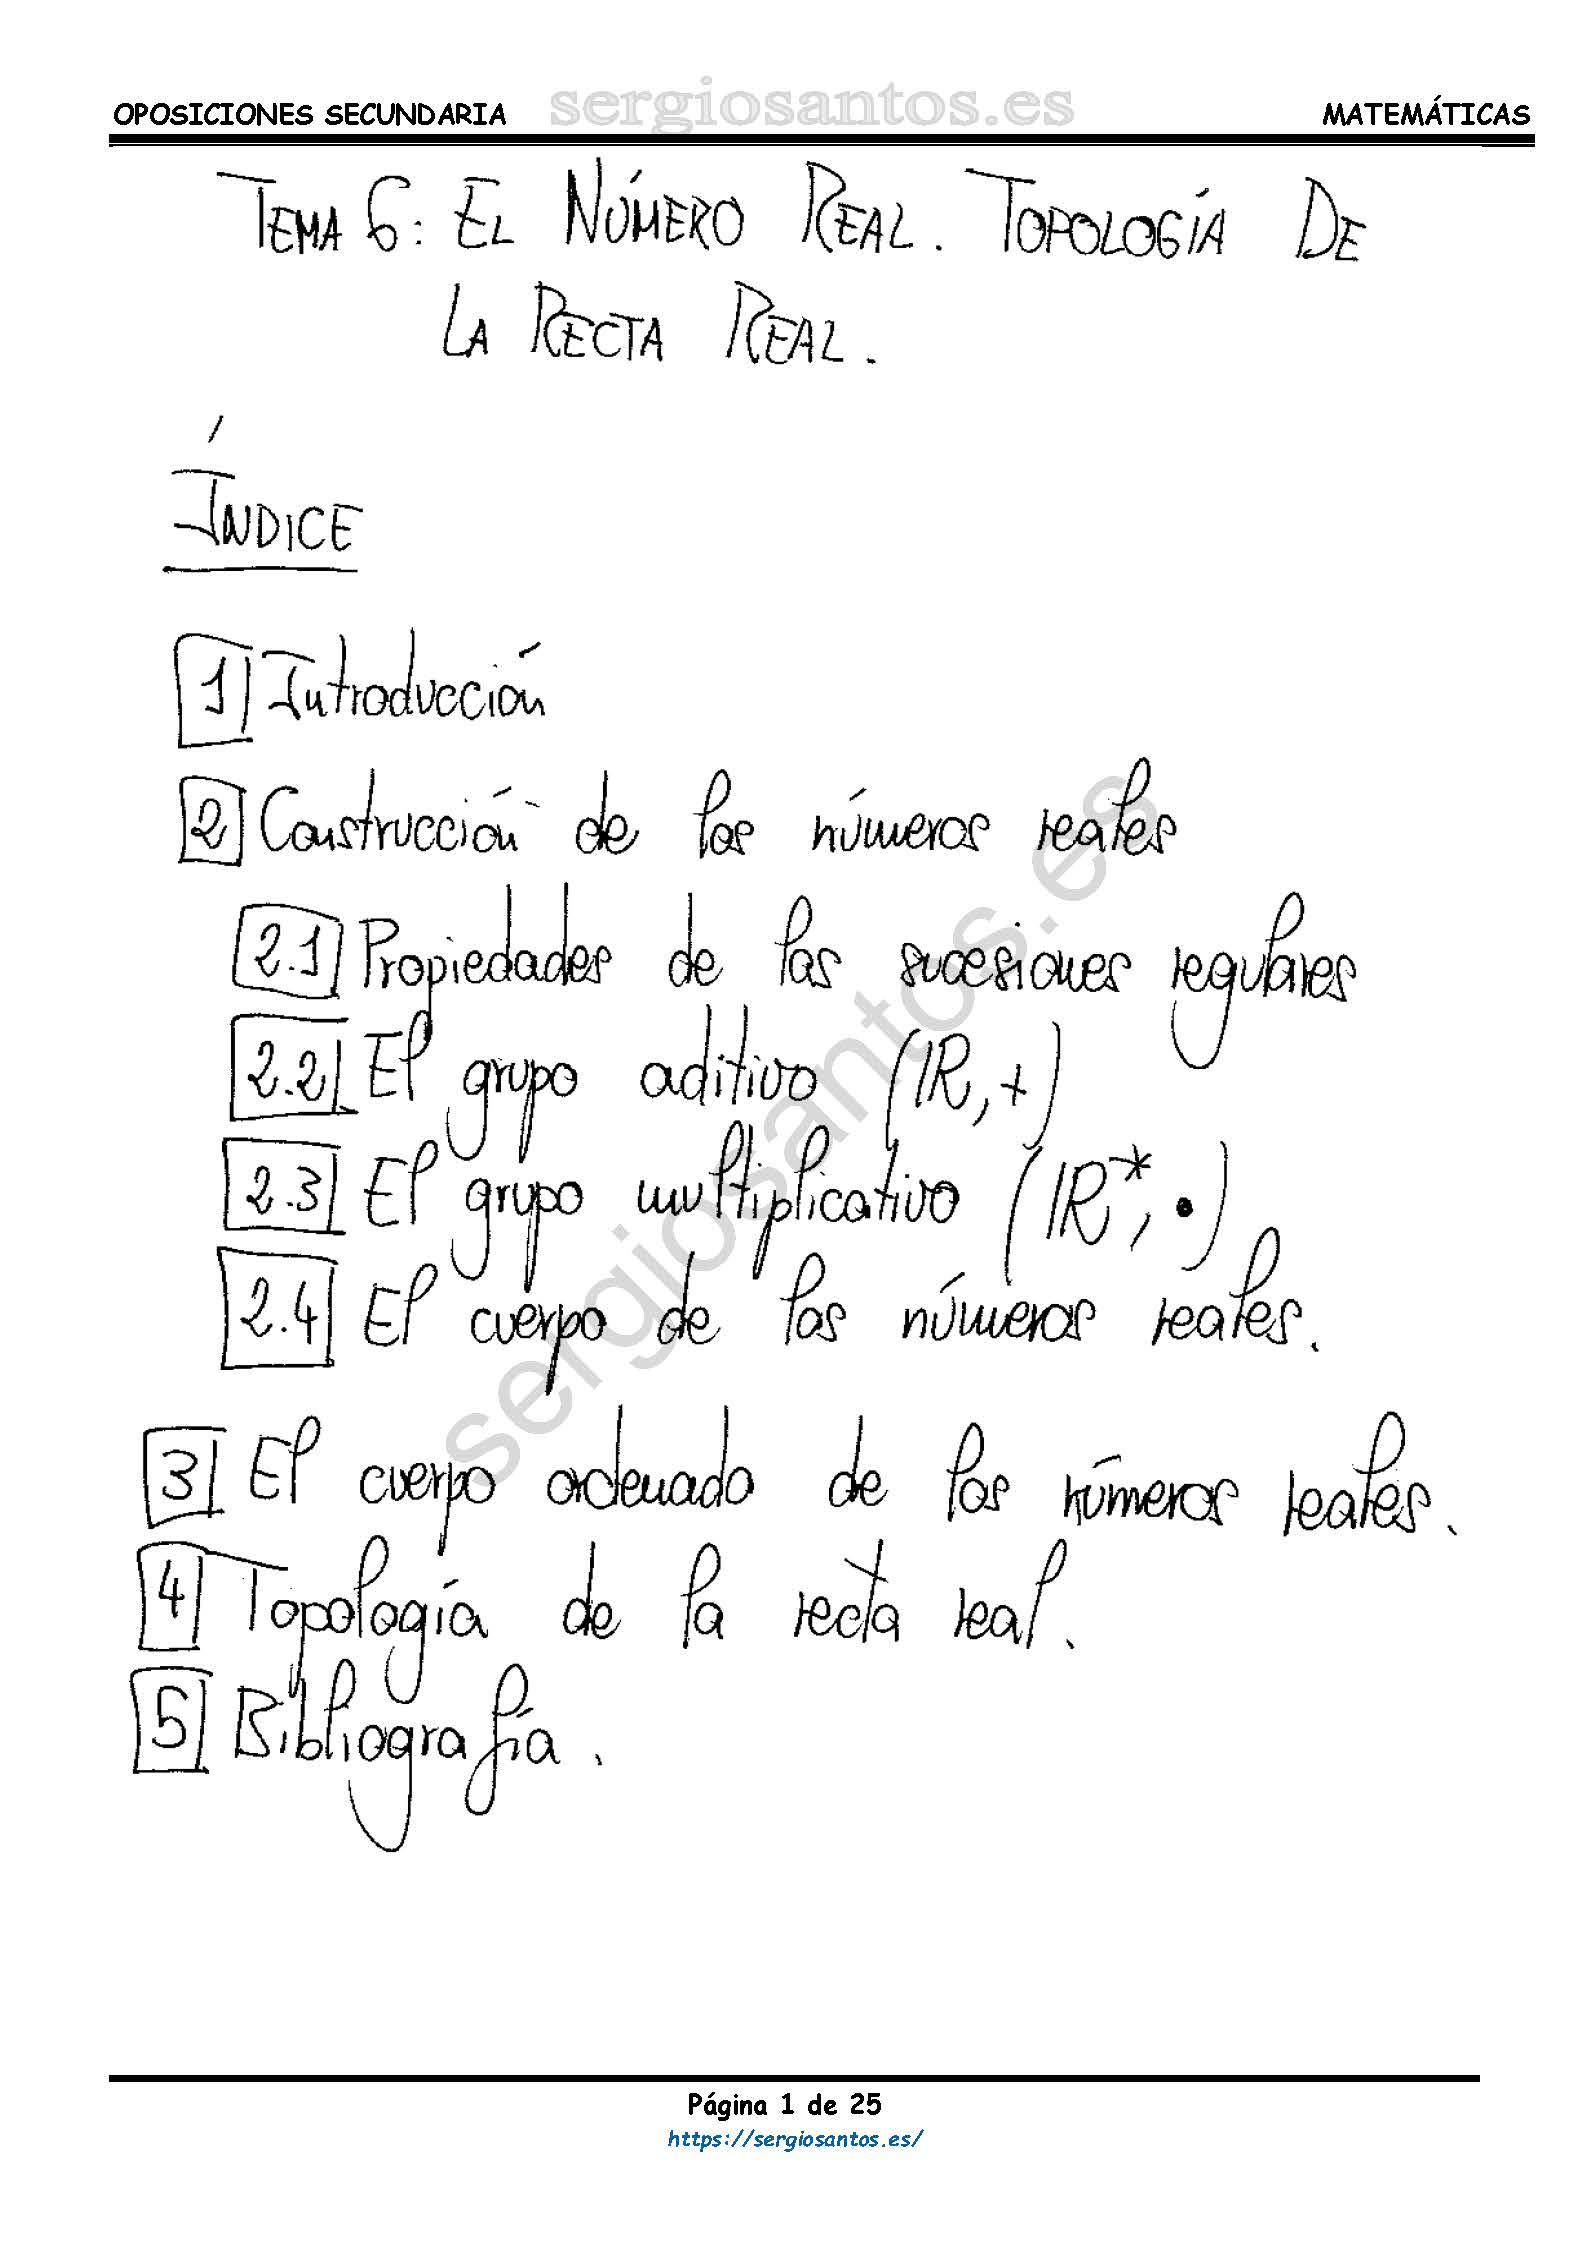 OPOSICIONES SECUNDARIA sergiosantos.es MATEMÁTICAS
TEMA 6: EL NÚMERO REAL. TOPOLOGÍA DE
LA RECTA REAL.
ÍNDICE
1 Introducción
2 Construcción de los números reales
2.1 Propiedades de las sucesiones regulares
2.2 El grupo aditivo (ℝ, +)
2.3 El grupo multiplicativo (ℝ*, •)
2.4 El cuerpo de los números reales.
3 El cuerpo ordenado de los números reales.
4 Topología de la recta real.
5 Bibliografía.
sergiosantos.es
Página 1 de 25
https://sergiosantos.es/